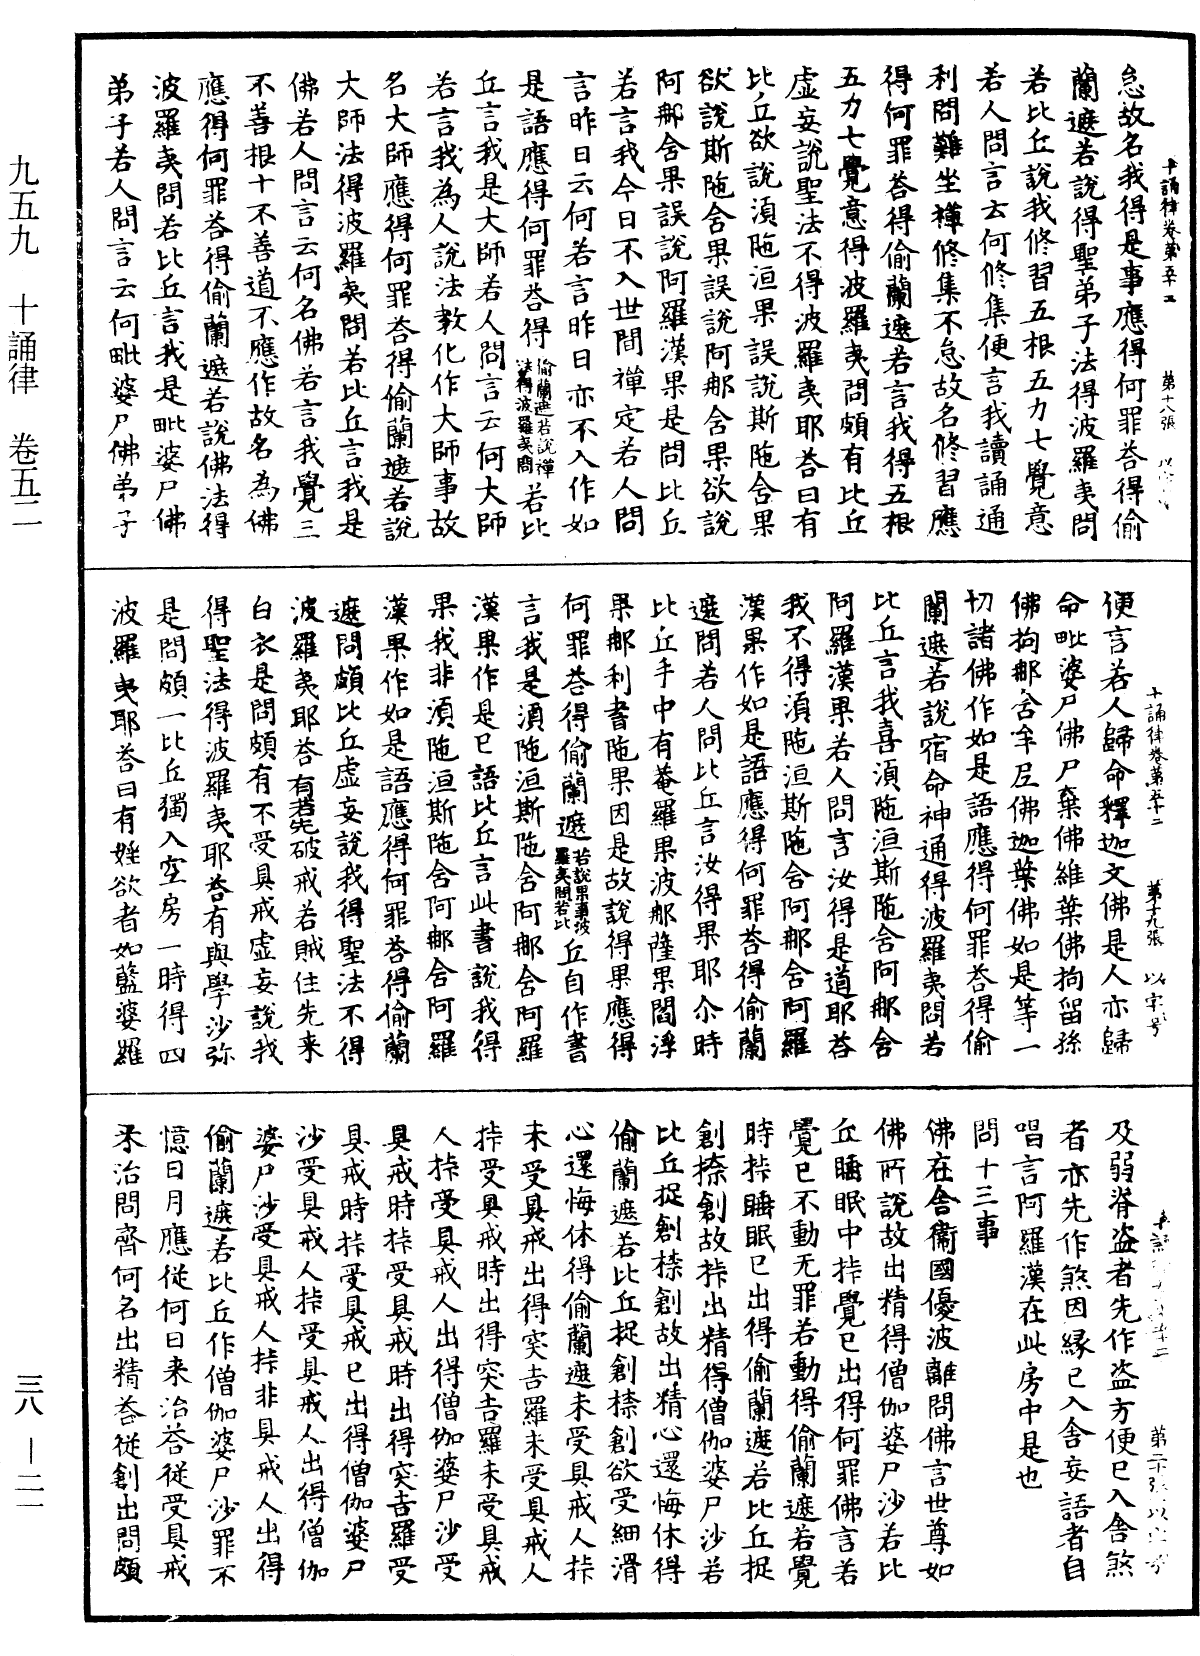 怠故名我得是事應得何罪荅得偷
蘭遮若說得聖弟子法得波羅夷問
若比丘說我修習五根五力七覺意
若人問言云何修集便言我讀誦通
利問難坐禪修集不怠故名修習應
得何罪荅得偷蘭遮若言我得五根
五力七覺意得波羅夷問頗有比丘
虛妄說聖法不得波羅夷耶荅曰有
比丘欲說湏陁洹果誤說斯陁含果
欲說斯陁含果誤說阿那含果欲說
阿那含果誤說阿羅漢果是問比丘
若言我今日不入世間禪定若人問
言昨日云何若言昨日亦不入作如
是語應得何罪荅得偷蘭遮若說禪法得波羅夷問若比
丘言我是大師若人問言云何大師
若言我為人說法教化作大師事故
名大師應得何罪荅得偷蘭遮若說
大師法得波羅夷問若比丘言我是
佛若人問言云何名佛若言我覺三
不善根十不善道不應作故名為佛
應得何罪荅得偷蘭遮若說佛法得
波羅夷問若比丘言我是毗婆尸佛
弟子若人問言云何毗婆尸佛弟子
十誦律卷第五十二 第十八張
便言若人歸命釋迦文佛是人亦歸
命毗婆尸佛尸棄佛維葉佛拘留孫
佛拘那含牟尼佛迦葉佛如是等一
切諸佛作如是語應得何罪荅得偷
蘭遮若說宿命神通得波羅夷問若
比丘言我喜湏陁洹斯陁含阿那含
阿羅漢果若人問言汝得是道耶荅
我不得湏陁洹斯陁含阿那含阿羅
漢果作如是語應得何罪荅得偷蘭
遮問若人問比丘言汝得果耶尒時
比丘手中有菴羅果波那薩果閻浮
果那利耆陁果因是故說得果應得
何罪荅得偷蘭遮若說果事波羅夷問若比丘自作書
言我是湏陁洹斯陁含阿那含阿羅
漢果作是已語比丘言此書說我得
果我非湏陁洹斯陁含阿那含阿羅
漢果作如是語應得何罪荅得偷蘭
遮問頗比丘虛妄說我得聖法不得
波羅夷耶荅有若先破戒若賊住先来
白衣是問頗有不受具戒虛妄說我
得聖法得波羅夷耶荅有與學沙弥
是問頗一比丘獨入空房一時得四
波羅夷耶荅曰有婬欲者如藍婆羅
十誦律卷第五十二 第十九張 以字号
及弱脊盗者先作盗方便已入舍煞
者亦先作煞因緣已入舍妄語者自
唱言阿羅漢在此房中是也
問十三事
佛在舍衞國優波離問佛言世尊如
佛所說故出精得僧伽婆尸沙若比
丘睡眠中㧊覺已出得何罪佛言若
覺已不動无罪若動得偷蘭遮若覺
時㧊睡眠已出得偷蘭遮若比丘捉
創捺創故㧊出精得僧伽婆尸沙若
比丘捉創捺創故出精心還悔休得
偷蘭遮若比丘捉創捺創欲受細滑
心還悔休得偷蘭遮未受具戒人㧊
未受具戒出得突吉羅未受具戒人
㧊受具戒時出得突吉羅未受具戒
人㧊受具戒人出得僧伽婆尸沙受
具戒時㧊受具戒時出得突吉羅受
具戒時㧊受具戒已出得僧伽婆尸
沙受具戒人㧊受具戒人出得僧伽
婆尸沙受具戒人㧊非具戒人出得
偷蘭遮若比丘作僧伽婆尸沙罪不
憶日月應從何日来治荅從受具戒
来治問齊何名出精荅從創出問頗
第二十張
九五九 十誦律 卷五二
三八 — 二一